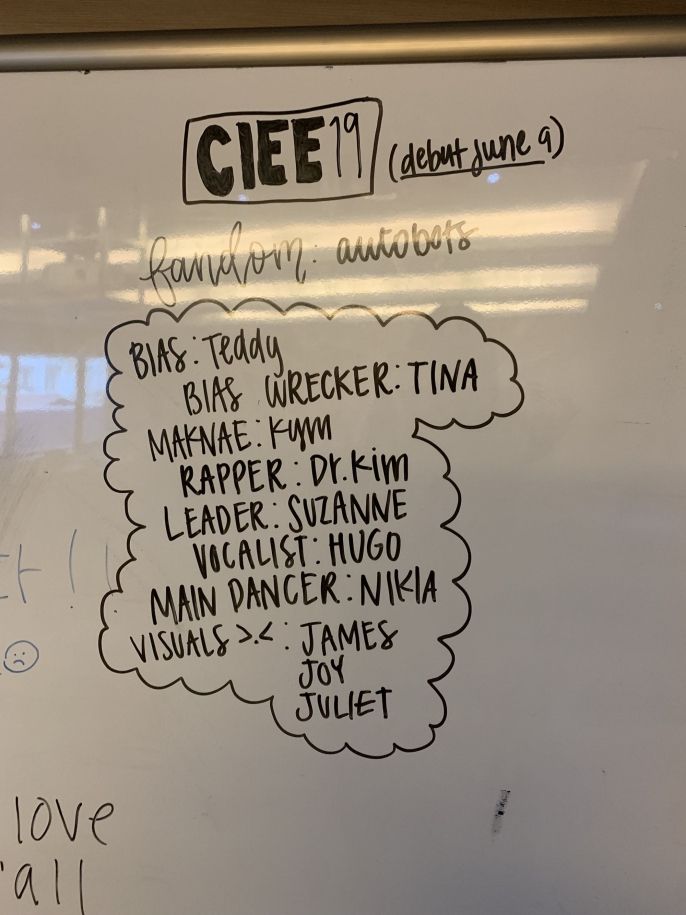 CIEE19 (debut June 9)
fandom: autobots
BIAS: Teddy
BIAS WRECKER: TINA
MAKNAE: Kym
RAPPER: Dr. Kim
LEADER: SUZANNE
VOCALIST: HUGO
MAIN DANCER: NIKIA
VISUALS >.< : JAMES
JOY
JULIET
love
'all